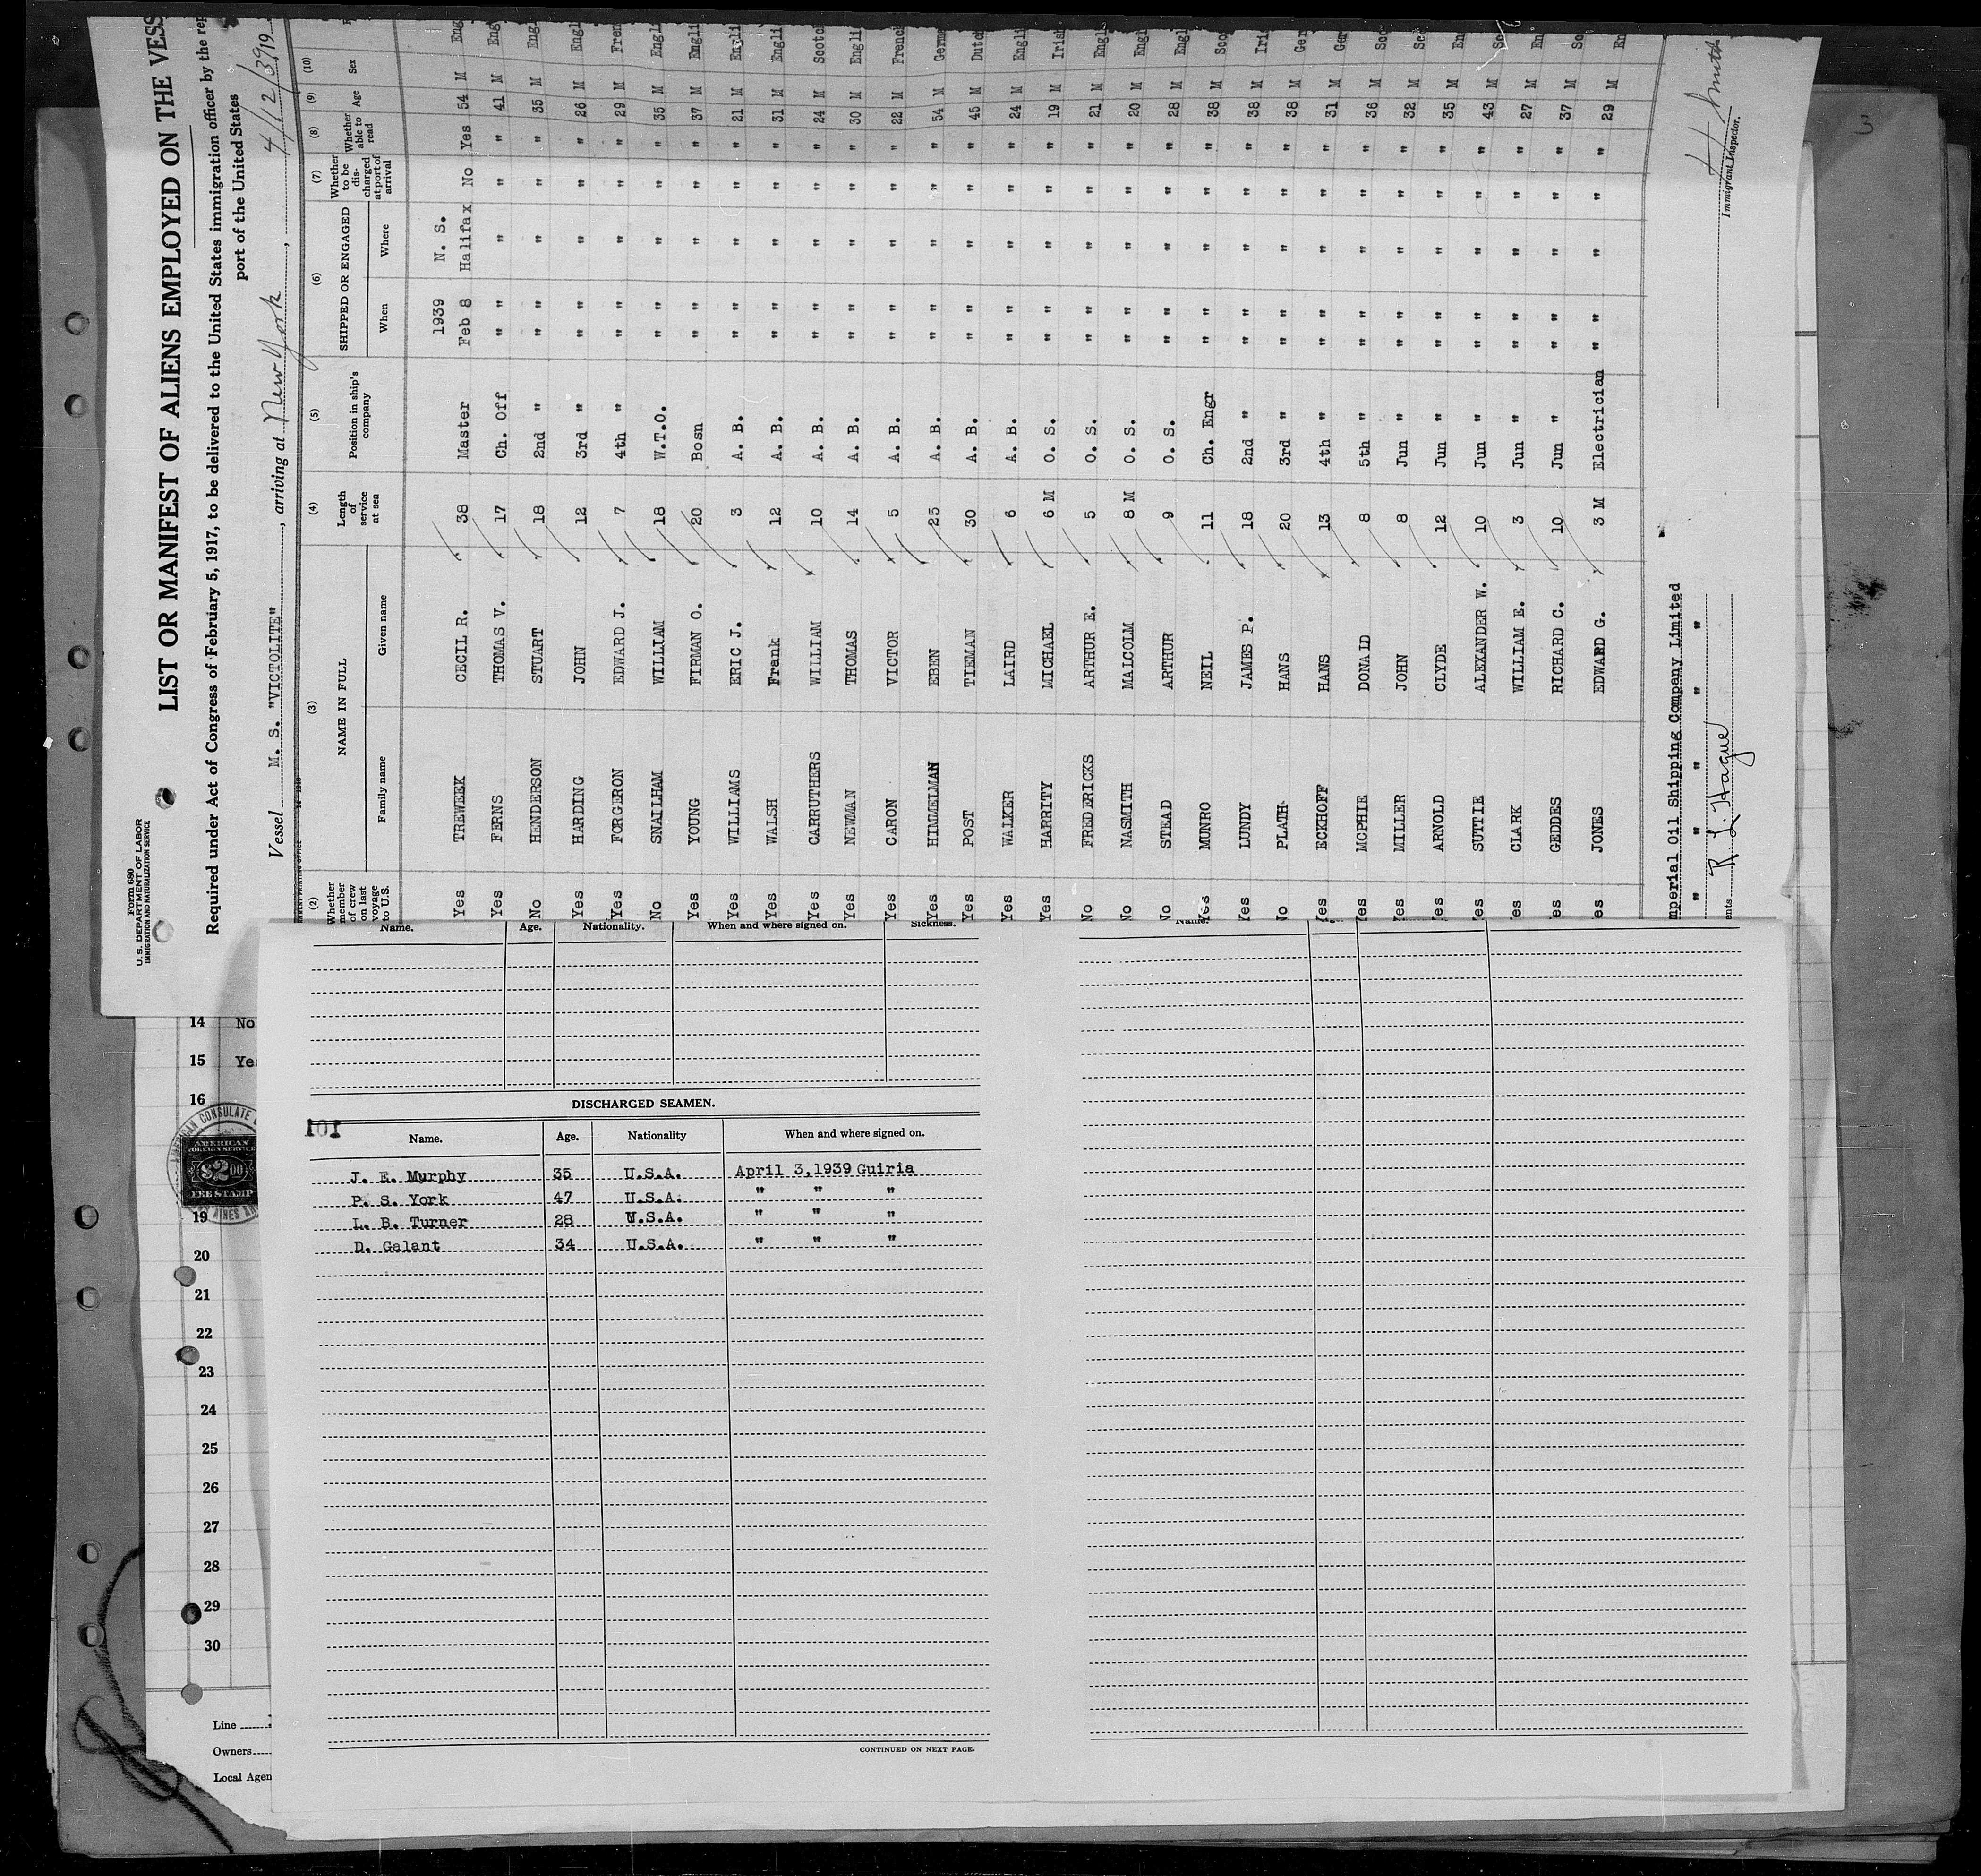 Form 680
U. S. DEPARTMENT OF LABOR
IMMIGRATION AND NATURALIZATION SERVICE
LIST OR MANIFEST OF ALIENS EMPLOYED ON THE VESS
Required under Act of Congress of February 5, 1917, to be delivered to the United States immigration officer by the rep
port of the United States
Vessel M. S. "VICTOLITE" , arriving at New York , 4/12/39 19
(2) (3) (4) (5) (6) (7) (8) (9) (10)
Whether member of crew on last voyage to U.S. NAME IN FULL Length of service at sea Position in ship's company SHIPPED OR ENGAGED Whether to be discharged at port of arrival Whether able to read Age Sex
Family name Given name When Where
1939 N. S.
Yes TREWEEK CECIL R. 38 Master Feb 8 Halifax No Yes 54 M Eng
Yes FERNS THOMAS V. 17 Ch. Off " " " " " 41 M Eng
No HENDERSON STUART 18 2nd " " " " " " 35 M Engl
Yes HARDING JOHN 12 3rd " " " " " " 26 M Engl
Yes FORGERON EDWARD J. 7 4th " " " " " " 29 M Fren
No SNAILHAM WILLIAM 18 W.T.O. " " " " " 35 M Engli
Yes YOUNG FIRMAN O. 20 Bosn " " " " " 37 M Engli
Yes WILLIAMS ERIC J. 3 A. B. " " " " " 21 M Engli
Yes WALSH Frank 12 A. B. " " " " " 31 M Engli
Yes CARRUTHERS WILLIAM 10 A. B. " " " " " 24 M Scotch
Yes NEWMAN THOMAS 14 A. B. " " " " " 30 M Englis
Yes CARON VICTOR 5 A. B. " " " " " 22 M French
Yes HIMMELMAN EBEN 25 A. B. " " " " " 54 M Germa
Yes POST TIEMAN 30 A. B. " " " " " 45 M Dutch
Yes WALKER LAIRD 6 A. B. " " " " " 24 M Englis
Yes HARRITY MICHAEL 6 M O. S. " " " " " 19 M Irish
No FREDERICKS ARTHUR E. 5 O. S. " " " " " 21 M Engli
No NASMITH MALCOLM 8 M O. S. " " " " " 20 M Engl
No STEAD ARTHUR 9 O. S. " " " " " 28 M Engl
Yes MUNRO NEIL 11 Ch. Engr " " " " " 38 M Sco
Yes LUNDY JAMES P. 18 2nd " " " " " " 38 M Iri
No PLATH HANS 20 3rd " " " " " " 38 M Ger
Yes ECKHOFF HANS 13 4th " " " " " " 31 M Ger
Yes MCPHIE DONALD 8 5th " " " " " " 36 M Sco
Yes MILLER JOHN 8 Jun " " " " " " 32 M Sc
Yes ARNOLD CLYDE 12 Jun " " " " " " 35 M En
Yes SUTTIE ALEXANDER W. 10 Jun " " " " " " 43 M Sc
es CLARK WILLIAM E. 3 Jun " " " " " " 27 M En
es GEDDES RICHARD C. 10 Jun " " " " " " 37 M Sc
es JONES EDWARD G. 3 M Electrician " " " " " 29 M En
mperial Oil Shipping Company Limited
" " " " "
ents R. L. Hague
H Smith
Immigrant Inspector.
14 No
15 Yes
16
19
20
21
22
23
24
25
26
27
28
29
30
AMERICAN
FOREIGN SERVICE
$2.00
FEE STAMP
Line
Owners
Local Agen
Name. Age. Nationality. When and where signed on. Sickness.
DISCHARGED SEAMEN.
101
Name. Age. Nationality When and where signed on.
J. E. Murphy 35 U.S.A. April 3,1939 Guiria
P. S. York 47 U.S.A. " " "
L. B. Turner 28 U.S.A. " " "
D. Galant 34 U.S.A. " " "
CONTINUED ON NEXT PAGE.
Name.